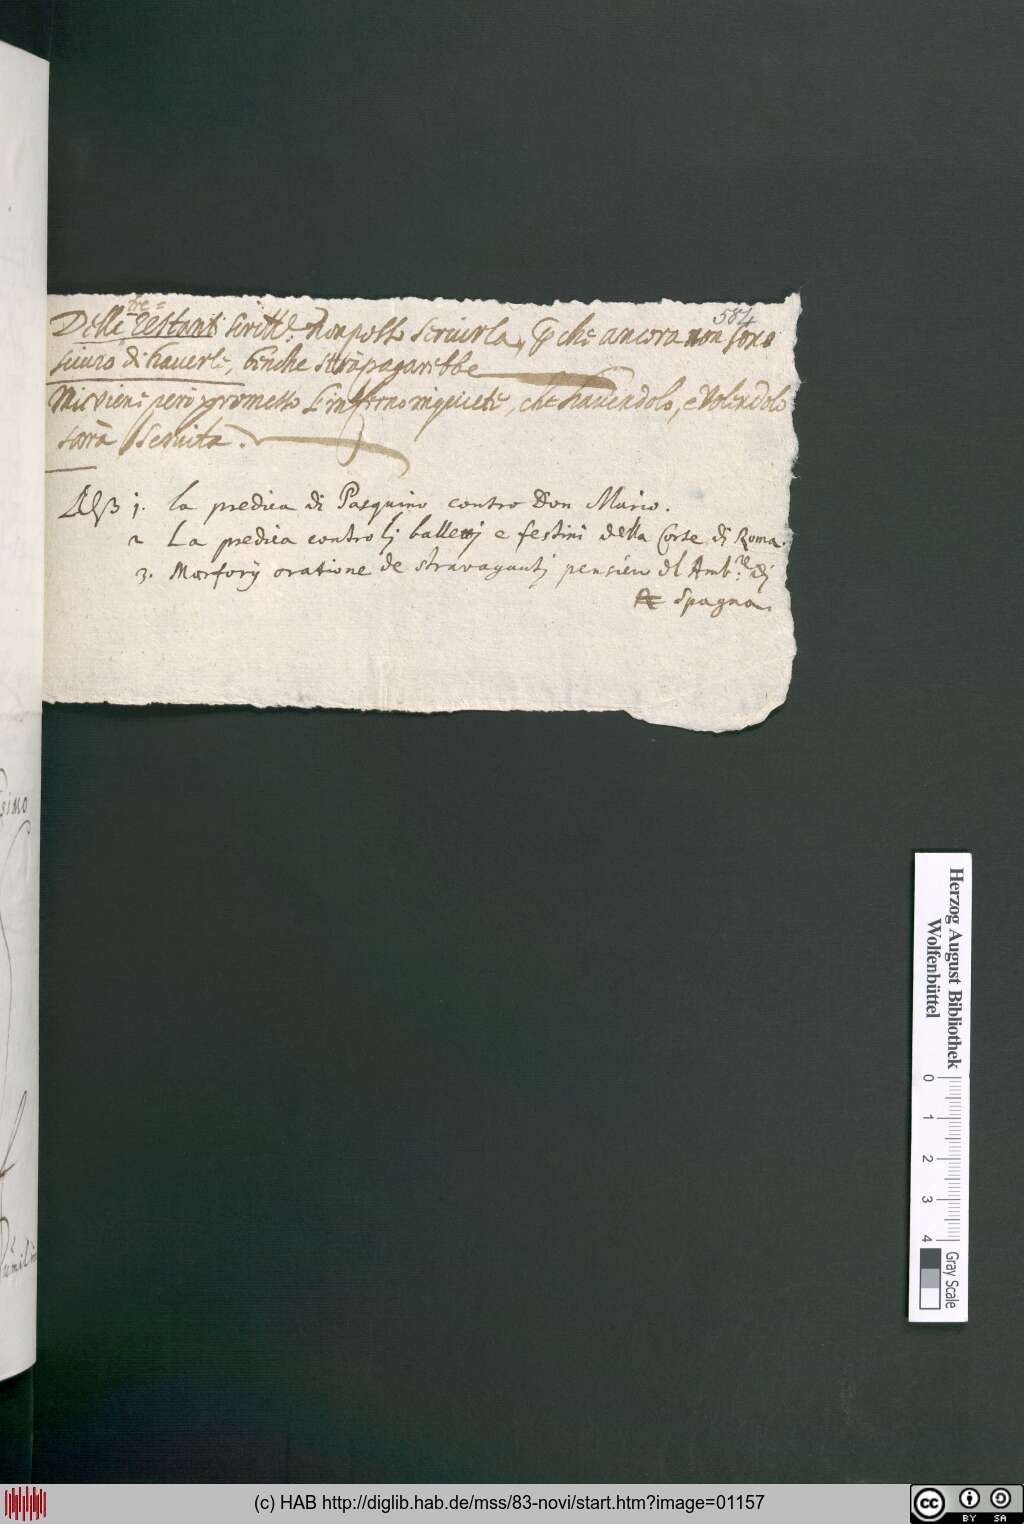 584
tre=
Delle restanti scritt.e non posso seruirla, che ancora non sono
siuro di hauerle, benche si strapagarebbe
Mi viene però promesso l'inferno inquieto, che hauendolo, e Volendolo
sarrà seruita.
1. la predica di Pasquino contro Don Mario.
2 La predica contro lj balletti e festini della Corte di Roma.
3. Morforij oratione de stravagantj pensieri del Amb.re dj
Spagna.
simo
Herzog August Bibliothek
Wolfenbüttel
0 1 2 3 4
Gray Scale
(c) HAB http://diglib.hab.de/mss/83-novi/start.htm?image=01157
cc BY SA